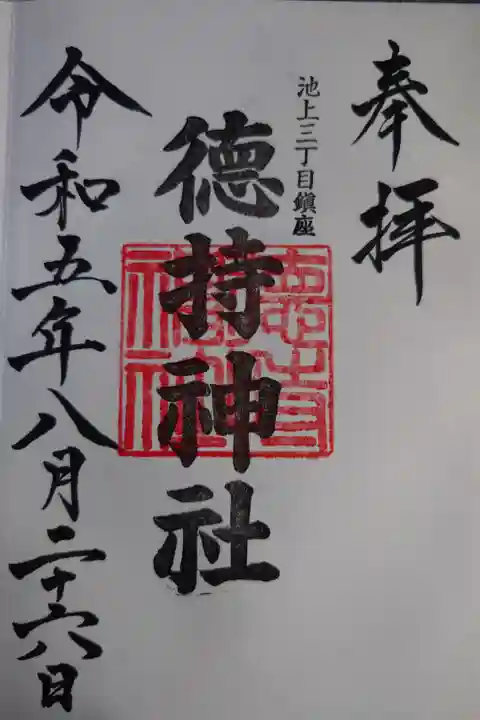 奉拝
池上三丁目鎮座
徳持神社
令和五年八月二十六日